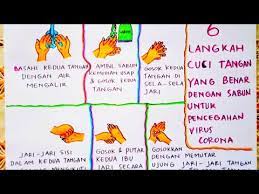 6
LANGKAH
CUCI TANGAN
YANG BENAR
DENGAN SABUN
UNTUK
PENCEGAHAN
VIRUS
CORONA
BASAHI KEDUA TANGAN
DENGAN AIR
MENGALIR
AMBIL SABUN
KEMUDIAN USAP
& GOSOK KEDUA
TANGAN
GOSOK KEDUA
TANGAN DI
SELA-SELA
JARI
JARI-JARI SISI
DALAM KEDUA TANGAN
GOSOK & PUTAR
KEDUA IBU
JARI SECARA
GOSOKKAN
DENGAN MEMUTAR
UJUNG JARI-JARI TANGAN